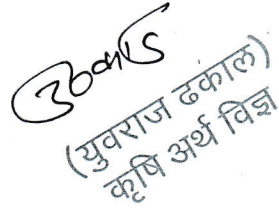 (युवराज ढकाल)
कृषि अर्थ विज्ञ